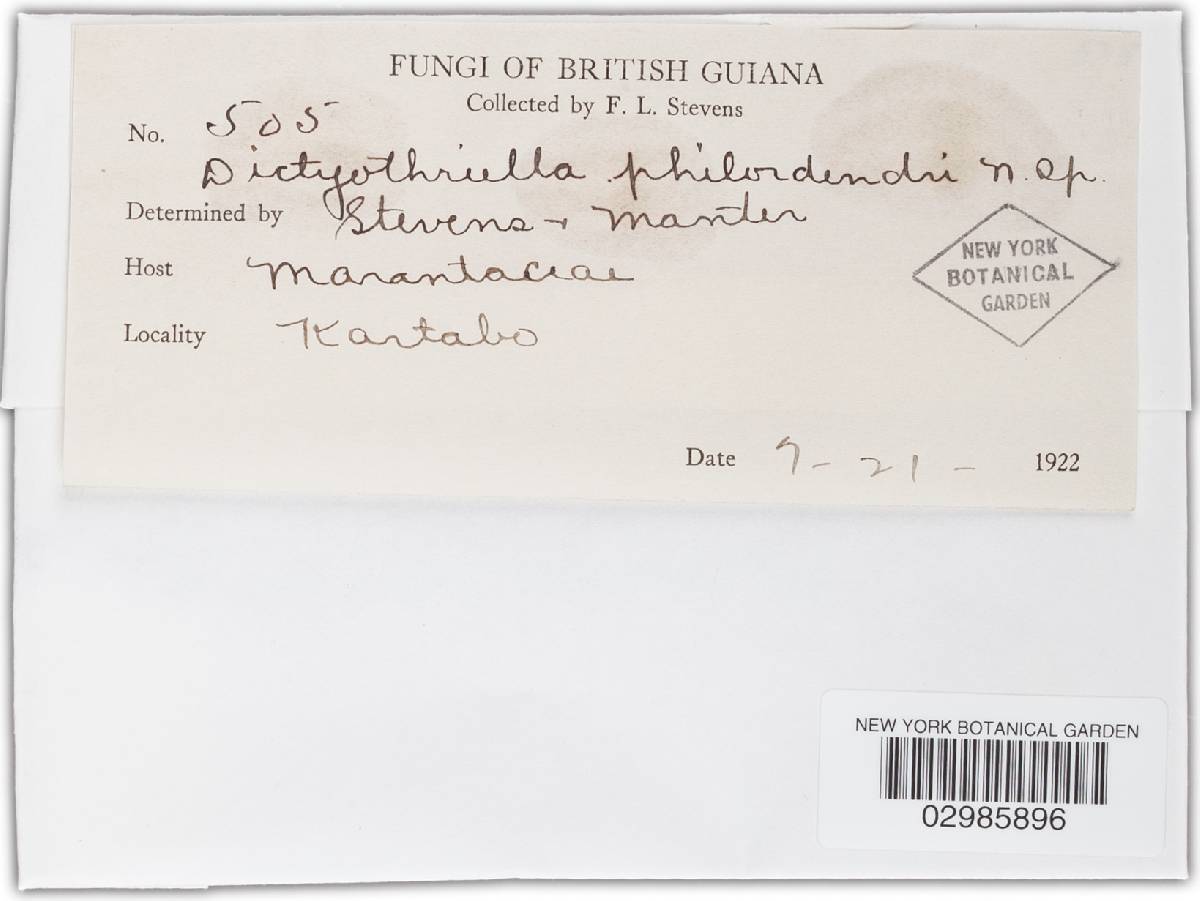 FUNGI OF BRITISH GUIANA
Collected by F. L. Stevens
No. 505
Dictyothriella philordendri n. sp.
Determined by Stevens + Manter
Host Marantaceae
Locality Kartabo
NEW YORK
BOTANICAL
GARDEN
Date 7-21- 1922
NEW YORK BOTANICAL GARDEN
02985896